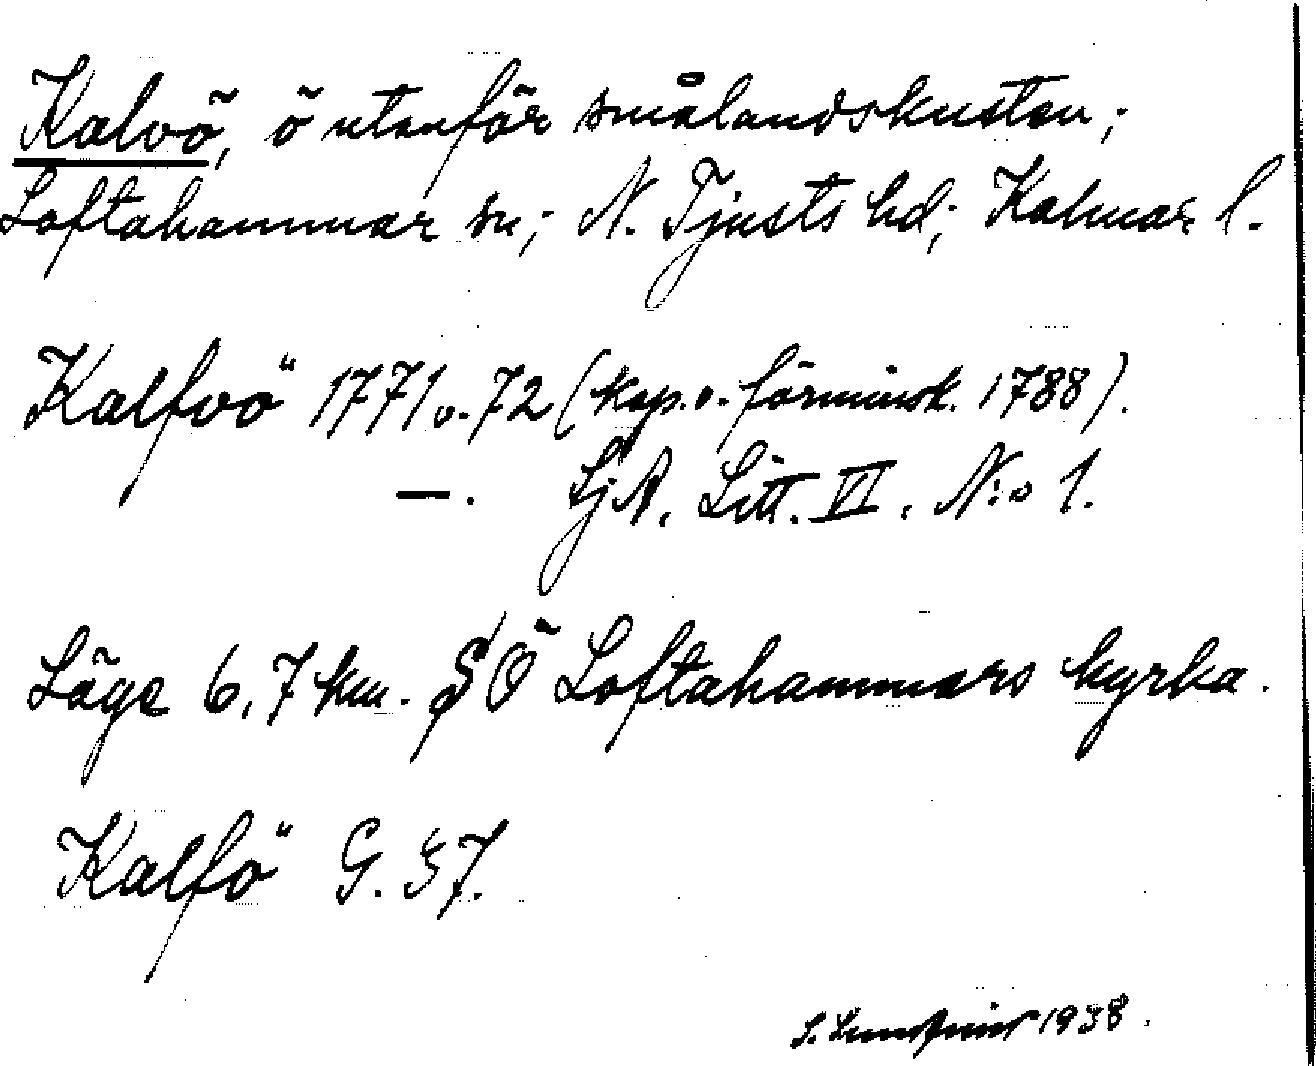 Kalvö, ö utanför smålandskusten;
Loftahammar sn; N. Tjusts hd; Kalmar l.
Kalfvö 1771 o. 72 (kop. o. förminsk. 1788).
—. SjA, Litt. VI, N:o 1.
Läge 6,7 km. SÖ Loftahammars kyrka.
Kalfö G. 37.
S. Lundqvist 1938.